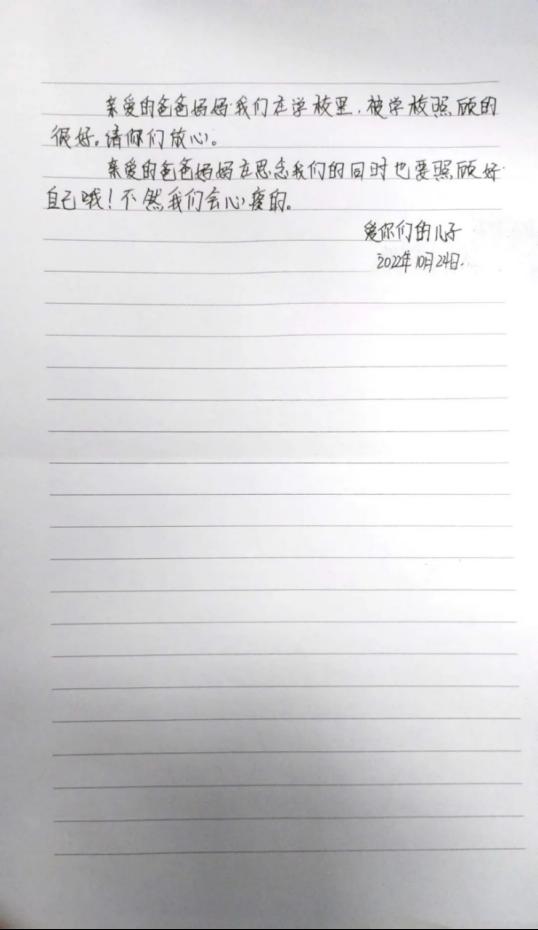 亲爱的爸爸妈妈.我们在学校里.被学校照顾的
很好。请你们放心。
亲爱的爸爸妈妈在思念我们的同时也要照顾好
自己哦！不然我们会心疼的。
爱你们的儿子
2022年10月24日.